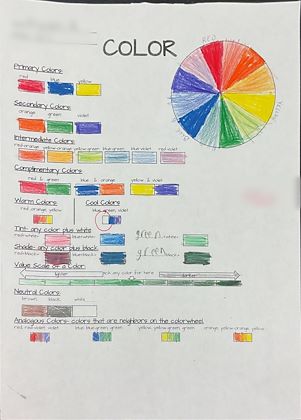 COLOR
RED
Primary Colors:
red blue yellow
Secondary Colors:
orange green violet
Intermediate Colors:
red-orange yellow-orange yellow-green blue-green blue-violet red-violet
Complimentary Colors:
red & green blue & orange yellow & violet
Warm Colors: Cool Colors:
red, orange, yellow blue, green, violet
Tint- any color plus white
red+white= blue+white= green +white=
Shade- any color plus black
red+black= blue+black= green +black=
Value Scale of a Color:
lighter pick any color for here darker
Neutral Colors:
brown black white
Analogous Colors- colors that are neighbors on the colorwheel.
red, red-violet, violet blue, blue-green, green yellow, yellow-green, green orange, yellow-orange, yellow